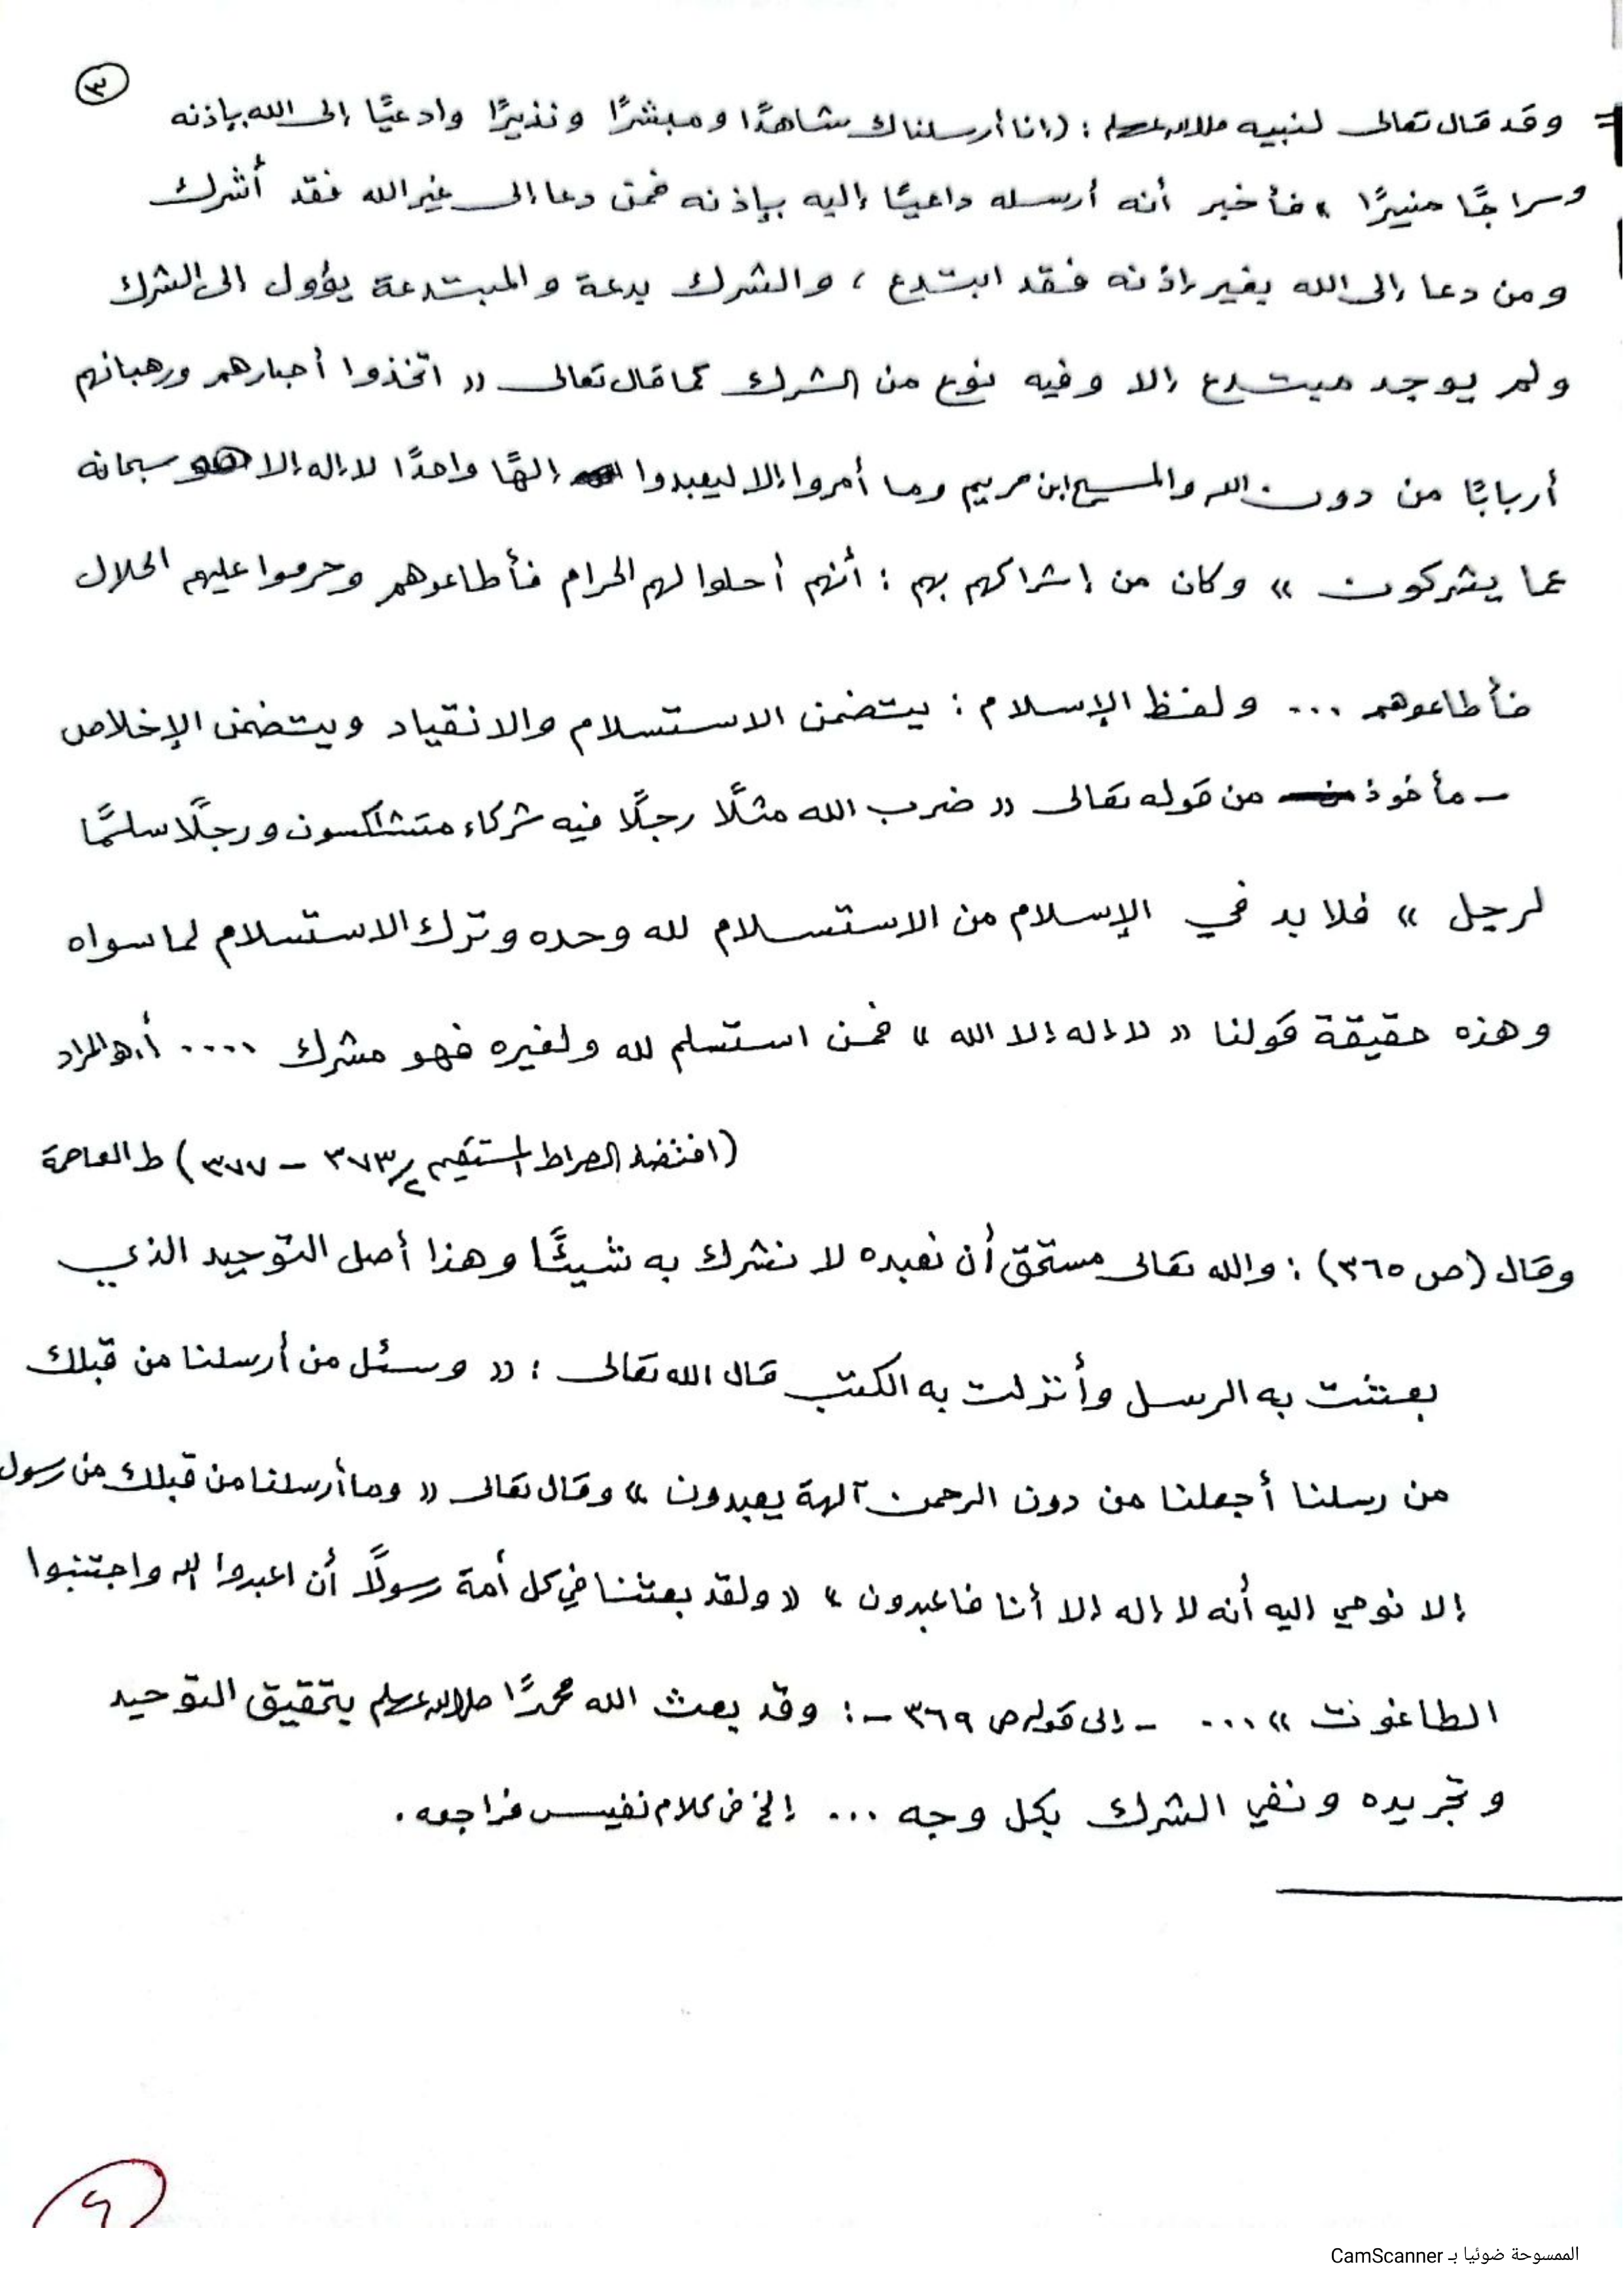 ٣
= وقد قال تعالى لنبيه صلى الله عليه وسلم : (إنا أرسلناك شاهدًا ومبشرًا ونذيرًا وادعيًا إلى الله بإذنه
وسراجًا منيرًا » فأخبر أنه أرسله داعيًا إليه بإذنه فمن دعا إلى غير الله فقد أشرك
ومن دعا إلى الله بغير إذنه فقد ابتدع ، والشرك بدعة والمبتدعة يؤول إلى الشرك
ولم يوجد مبتدع إلا وفيه نوع من الشرك كما قال تعالى « اتخذوا أحبارهم ورهبانهم
أربابًا من دون الله والمسيح ابن مريم وما أمروا إلا ليعبدوا إلهًا واحدًا لا إله إلا هو سبحانه
عما يشركون » وكان من إشراكهم بهم : أنهم أحلوا لهم الحرام فأطاعوهم وحرموا عليهم الحلال
فأطاعوهم ... ولفظ الإسلام : يتضمن الاستسلام والانقياد ويتضمن الإخلاص
- مأخوذ من قوله تعالى « ضرب الله مثلًا رجلًا فيه شركاء متشاكسون ورجلًا سلمًا
لرجل » فلا بد في الإسلام من الاستسلام لله وحده وترك الاستسلام لما سواه
وهذه حقيقة قولنا « لا إله إلا الله » فمن استسلم لله ولغيره فهو مشرك .... أ.هـ المراد
(اقتضاء الصراط المستقيم ٢/ ٣٧٣ - ٣٧٧) ط العاصمة
وقال (ص ٣٦٥) : والله تعالى مستحق أن نعبده لا نشرك به شيئًا وهذا أصل التوحيد الذي
بعثت به الرسل وأنزلت به الكتب قال الله تعالى : « وسئل من أرسلنا من قبلك
من رسلنا أجعلنا من دون الرحمن آلهة يعبدون » وقال تعالى « وما أرسلنا من قبلك من رسول
إلا نوحي إليه أنه لا إله إلا أنا فاعبدون » « ولقد بعثنا في كل أمة رسولًا أن اعبدوا الله واجتنبوا
الطاغوت » ... - إلى قوله ص ٣٦٩ - : وقد بعث الله محمدًا صلى الله عليه وسلم بتحقيق التوحيد
وتجريده ونفي الشرك بكل وجه ... إلخ من كلام نفيس فراجعه .
الممسوحة ضوئيا بـ CamScanner